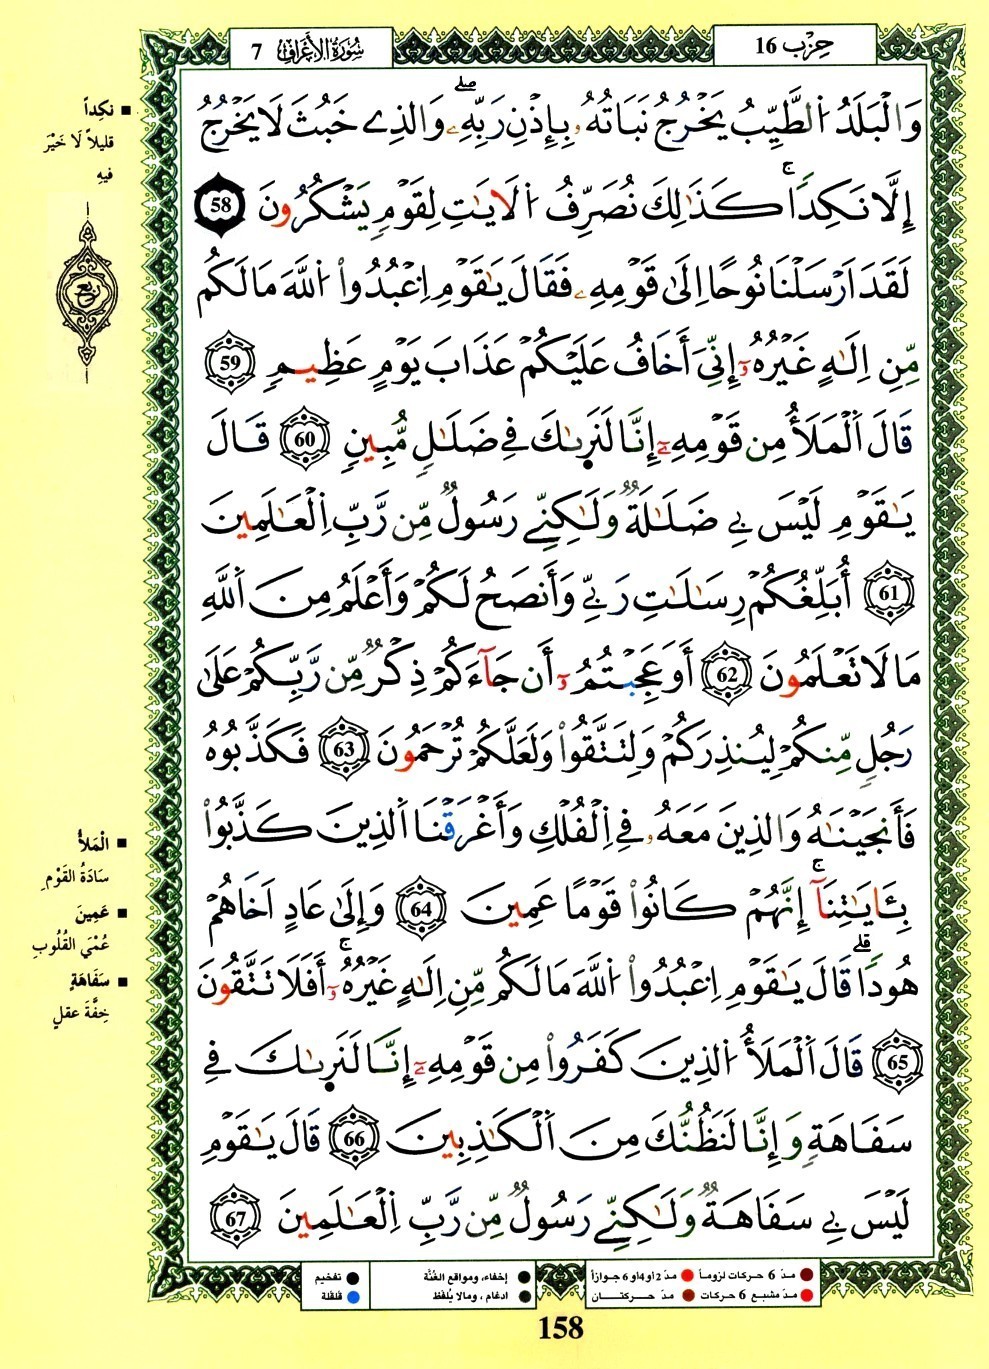 سُورَةُ الأَعْرَافِ 7
حِزْب 16
وَالْبَلَدُ الطَّيِّبُ يَخْرُجُ نَبَاتُهُۥ بِإِذْنِ رَبِّهِۦ ۖ وَالذِے خَبُثَ لَا يَخْرُجُ
إِلَّا نَكِداٗ ۚ كَذَٰلِكَ نُصَرِّفُ اُ۬لَايَٰتِ لِقَوْمٖ يَشْكُرُونَ 58
لَقَدَ اَرْسَلْنَا نُوحًا اِلَىٰ قَوْمِهِۦ فَقَالَ يَٰقَوْمِ اِ۟عْبُدُواْ اُ۬للَّهَ مَا لَكُم
مِّنِ اِلَٰهٍ غَيْرُهُۥٓ إِنِّيَ أَخَافُ عَلَيْكُمْ عَذَابَ يَوْمٍ عَظِيمٖ 59
قَالَ اَ۬لْمَلَأُ مِن قَوْمِهِۦٓ إِنَّا لَنَر۪ىٰكَ فِے ضَلَٰلٖ مُّبِينٖ 60 قَالَ
يَٰقَوْمِ لَيْسَ بِے ضَلَٰلَةٞ وَلَٰكِنِّے رَسُولٞ مِّن رَّبِّ اِ۬لْعَٰلَمِينَ
61 أُبَلِّغُكُمْ رِسَٰلَٰتِ رَبِّے وَأَنصَحُ لَكُمْ وَأَعْلَمُ مِنَ اَ۬للَّهِ
مَا لَا تَعْلَمُونَ 62 أَوَعَجِبْتُمُۥٓ أَن جَآءَكُمْ ذِكْرٞ مِّن رَّبِّكُمْ عَلَىٰ
رَجُلٖ مِّنكُمْ لِيُنذِرَكُمْ وَلِتَتَّقُواْ وَلَعَلَّكُمْ تُرْحَمُونَ 63 فَكَذَّبُوهُ
فَأَنجَيْنَٰهُ وَالذِينَ مَعَهُۥ فِے اِ۬لْفُلْكِ وَأَغْرَقْنَا اَ۬لذِينَ كَذَّبُواْ
بِـَٔايَٰتِنَآ ۚ إِنَّهُمْ كَانُواْ قَوْماً عَمِينَ 64 وَإِلَىٰ عَادٍ اَخَاهُمْ
هُوداٗ ۗ قَالَ يَٰقَوْمِ اِ۟عْبُدُواْ اُ۬للَّهَ مَا لَكُم مِّنِ اِلَٰهٍ غَيْرُهُۥٓ ۚ أَفَلَا تَتَّقُونَ
65 قَالَ اَ۬لْمَلَأُ اُ۬لذِينَ كَفَرُواْ مِن قَوْمِهِۦٓ إِنَّا لَنَر۪ىٰكَ فِے
سَفَاهَةٖ وَإِنَّا لَنَظُنُّكَ مِنَ اَ۬لْكَٰذِبِينَ 66 قَالَ يَٰقَوْمِ
لَيْسَ بِے سَفَاهَةٞ وَلَٰكِنِّے رَسُولٞ مِّن رَّبِّ اِ۬لْعَٰلَمِينَ 67
نَكِداً
قليلاً لَا خَيْرَ
فيهِ
ربع
الْمَلأُ
سَادَةُ القَوْمِ
عَمِينَ
عُمْيَ القُلُوبِ
سَفَاهَةٍ
خِفَّةَ عقلٍ
مدّ 6 حركات لزوماً
مدّ 2 أو 4 أو 6 جوازاً
مدّ مشبع 6 حركات
مدّ حركتان
إخفاء، ومواقع الغُنَّة
ادغام ، ومالا يُلفَظ
تفخيم
قلقلة
158